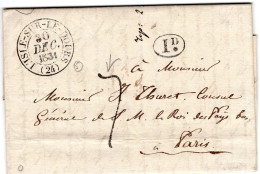 L'ISLE-SUR-LE-DOUBS
30
DEC.
1831
(24)
1D
à Monsieur
Monsieur H Thuret, Consul
Général de S. M. le Roi des Pays Bas
à Paris